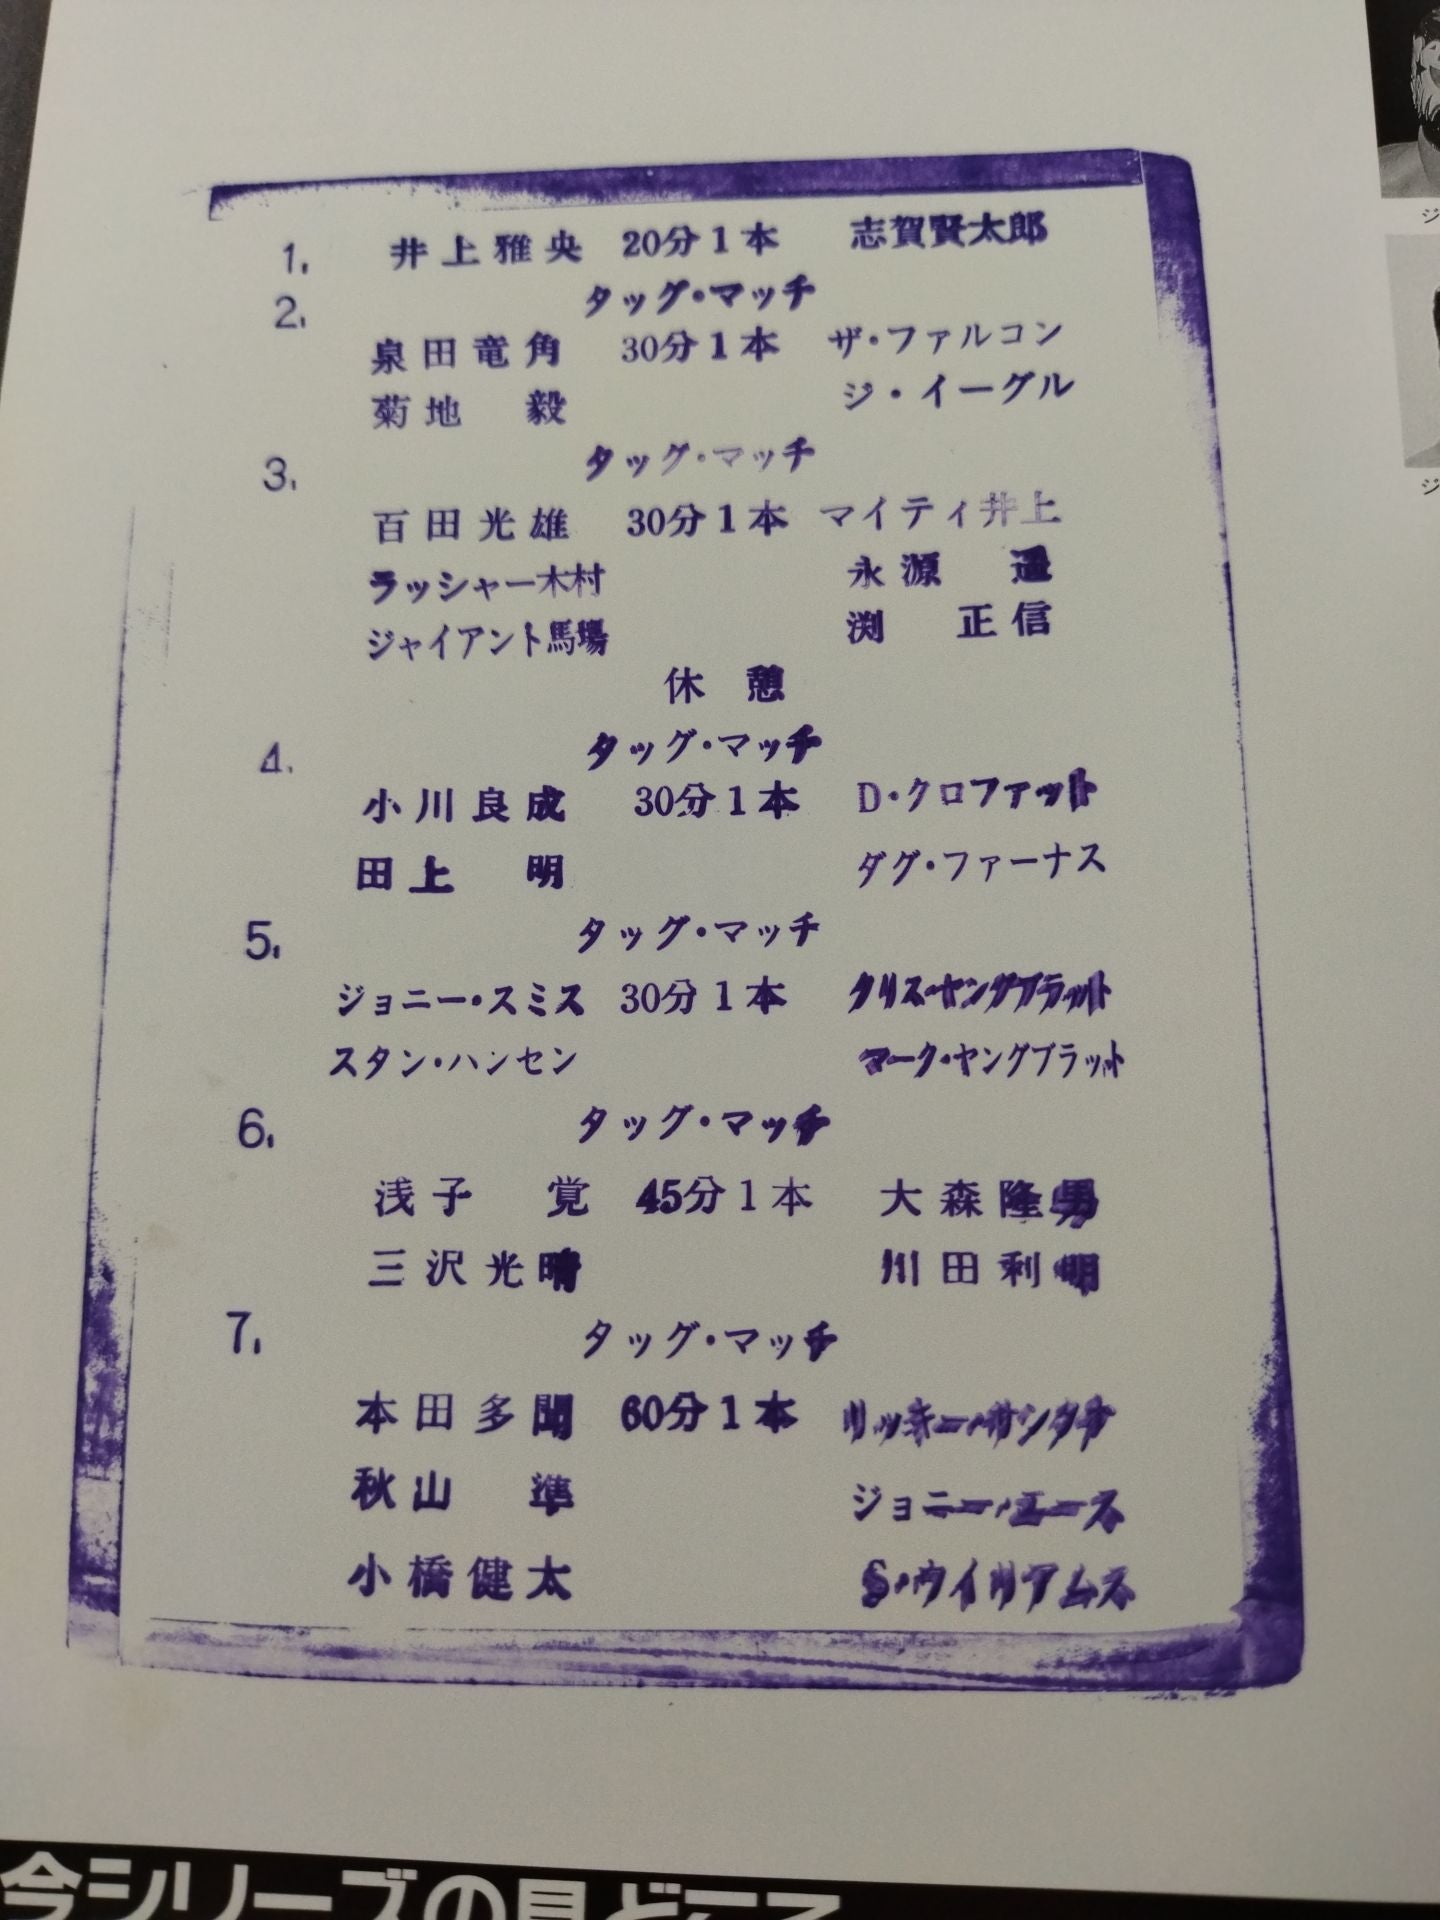 1. 井上雅央 20分1本 志賀賢太郎
2. タッグ・マッチ
泉田竜角 30分1本 ザ・ファルコン
菊地 毅 ジ・イーグル
3. タッグ・マッチ
百田光雄 30分1本 マイティ井上
ラッシャー木村 永源 遥
ジャイアント馬場 渕 正信
休憩
4. タッグ・マッチ
小川良成 30分1本 D・クロファット
田上 明 ダグ・ファーナス
5. タッグ・マッチ
ジョニー・スミス 30分1本 クリス・ヤングブラット
スタン・ハンセン マーク・ヤングブラット
6. タッグ・マッチ
浅子 覚 45分1本 大森隆男
三沢光晴 川田利明
7. タッグ・マッチ
本田多聞 60分1本 リッキー・サンタナ
秋山 準 ジョニー・エース
小橋健太 S・ウイリアムス
今シリーズの見どころ